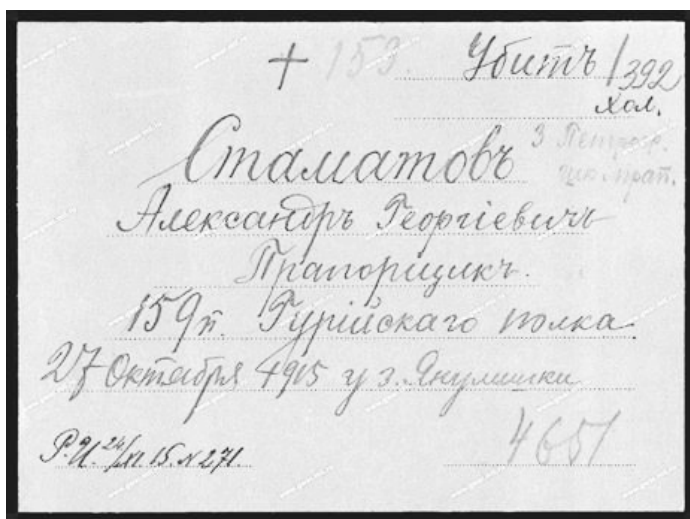 + 153. Убитъ / 392
хол.
Стаматовъ
3 Петрогр.
шк. прап.
Александръ Георгіевичъ
Прапорщикъ.
159 п. Гурійскаго полка
27 Октября 1915 у з. Янулишки
Р.И. 24/XI.15. № 271.
4651